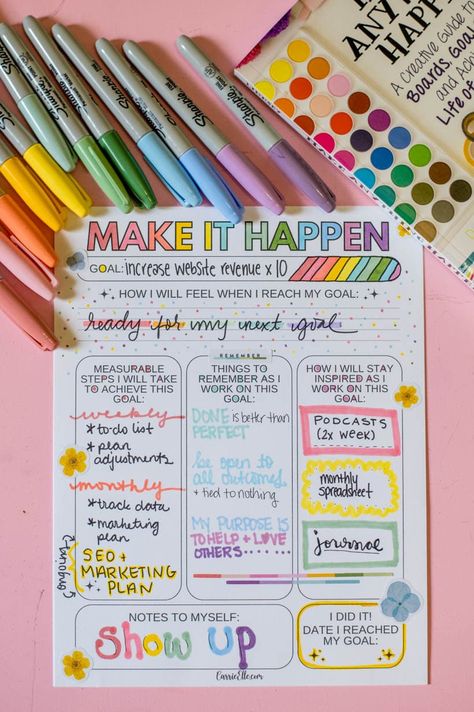 ANY
HAPP
A Creative Guide to
Boards, Goal
and A
Life of
Sharpie
Sharpie
Sharpie
Sharpie
Sharpie
Sharpie
MAKE IT HAPPEN
GOAL: increase website revenue x 10
HOW I WILL FEEL WHEN I REACH MY GOAL:
ready for my next goal
REMEMBER
MEASURABLE
STEPS I WILL TAKE
TO ACHIEVE THIS
GOAL:
weekly
*to-do list
*plan
adjustments
monthly
*track data
*marketing
plan
SEO +
MARKETING
PLAN
THINGS TO
REMEMBER AS I
WORK ON THIS
GOAL:
DONE is better than
PERFECT
be open to
all outcomes
+ tied to nothing
MY PURPOSE IS
TO HELP + LOVE
OTHERS
HOW I WILL STAY
INSPIRED AS I
WORK ON THIS
GOAL:
PODCASTS
(2x week)
monthly
spreadsheet
journal
NOTES TO MYSELF:
Show UP
CarrieElle.com
I DID IT!
DATE I REACHED
MY GOAL: